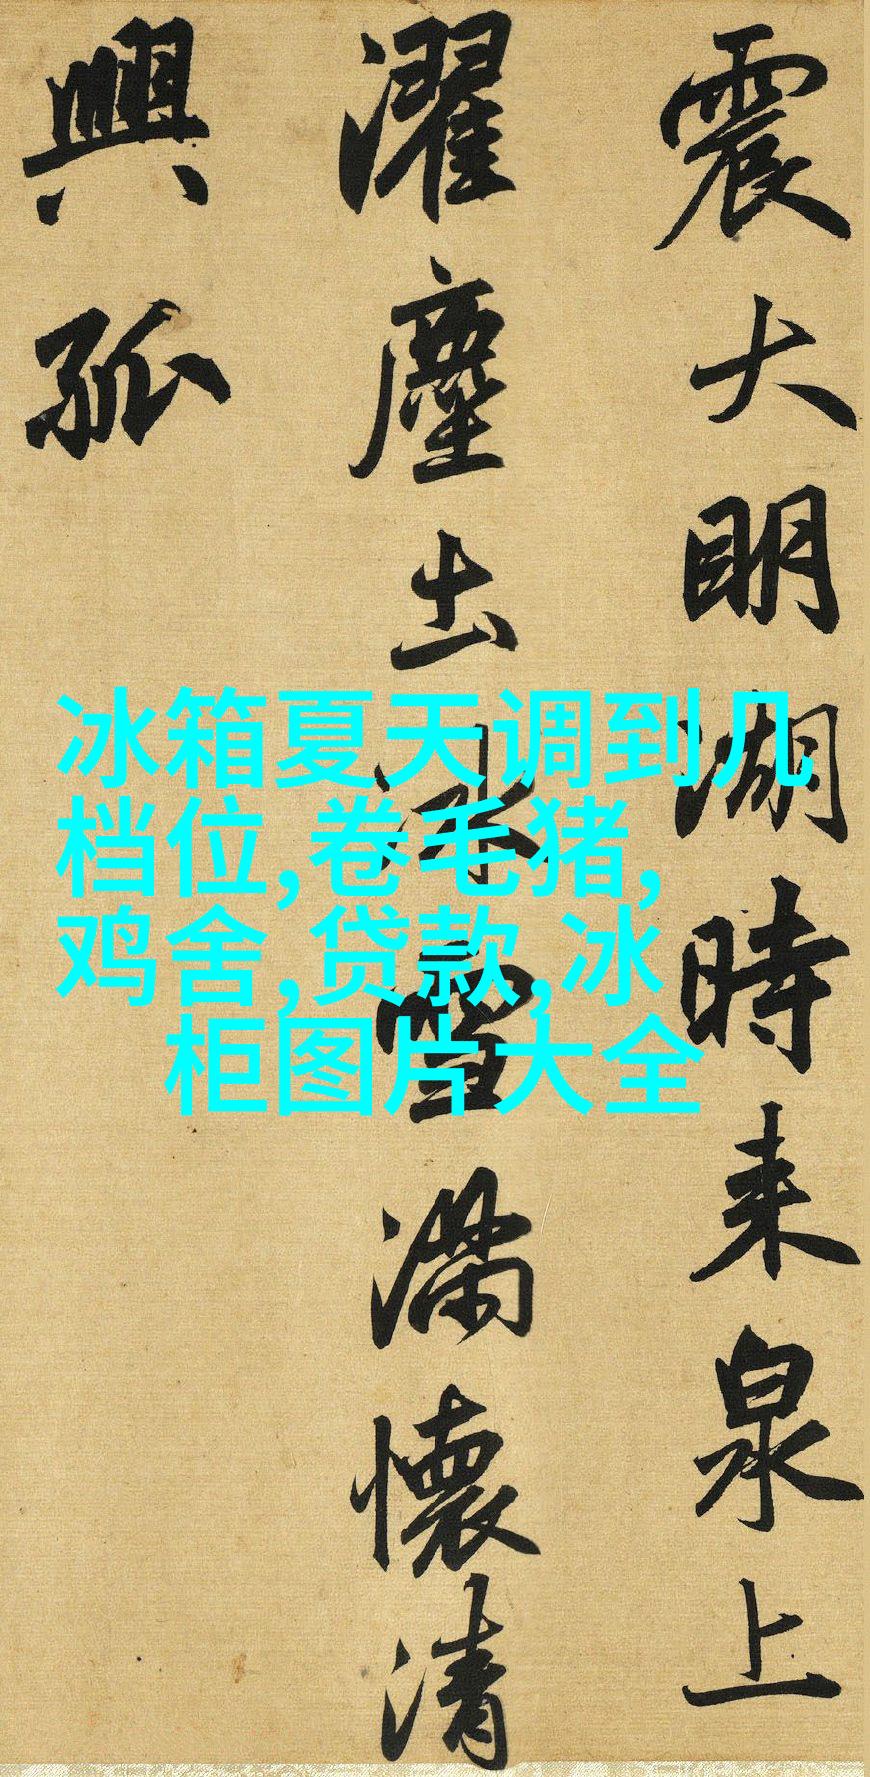 震大明湖時来泉上
濯塵出冰雪滿懷清
興孤
冰箱夏天调到几
档位,卷毛猪,
鸡舍,贷款,冰
柜图片大全